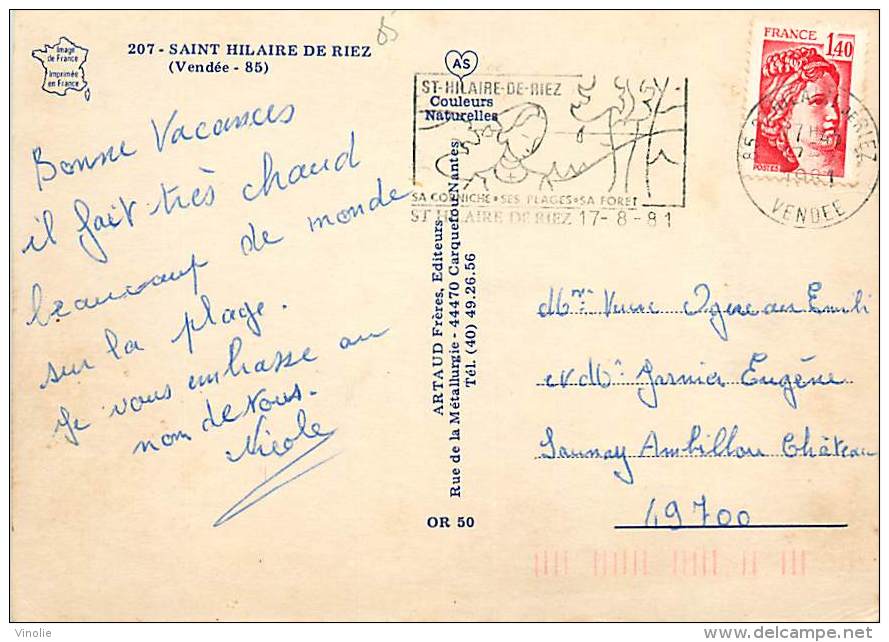 Image
de France
Imprimée
en France
207 - SAINT HILAIRE DE RIEZ
(Vendée - 85)
85
Bonne Vacances
il fait très chaud
beaucoup de monde
sur la plage.
Je vous embrasse au
nom de nous.
Nicole
AS
Couleurs
Naturelles
ARTAUD Frères, Editeurs
Rue de la Métallurgie - 44470 Carquefou/Nantes
Tél. (40) 49.26.56
OR 50
ST-HILAIRE-DE-RIEZ
SA CORNICHE • SES PLAGES • SA FORET
ST HILAIRE DE RIEZ 17-8-81
FRANCE
1,40
POSTES
85 RIEZ
17 H
1981
VENDEE
Mme Veuve Ogereau Emili
Garnier Eugène
Launay Ambillou Château
49700
Vinolie
http://www.delcampe.net